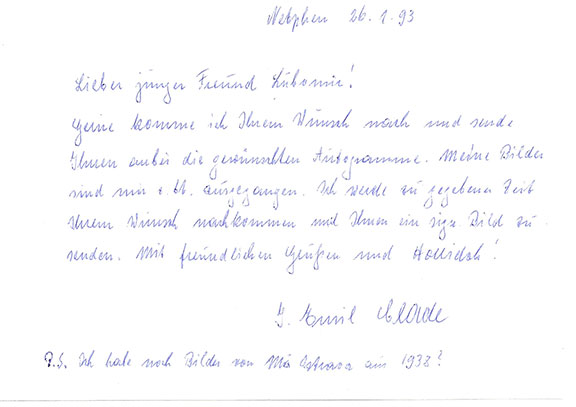 Netphen 26.1.93
Lieber junger Freund Lubomir!
Gerne komme ich Ihrem Wunsch nach und sende
Ihnen anbei die gewünschten Autogramme. Meine Bilder
sind mir z. Zt. ausgegangen. Ich werde zu gegebener Zeit
Ihrem Wunsch nachkommen und Ihnen ein sign. Bild zu
senden. Mit freundlichen Grüßen und Horrido!
Emil
P.S. Ich habe noch Bilder von Mä Ostrava aus 1938?